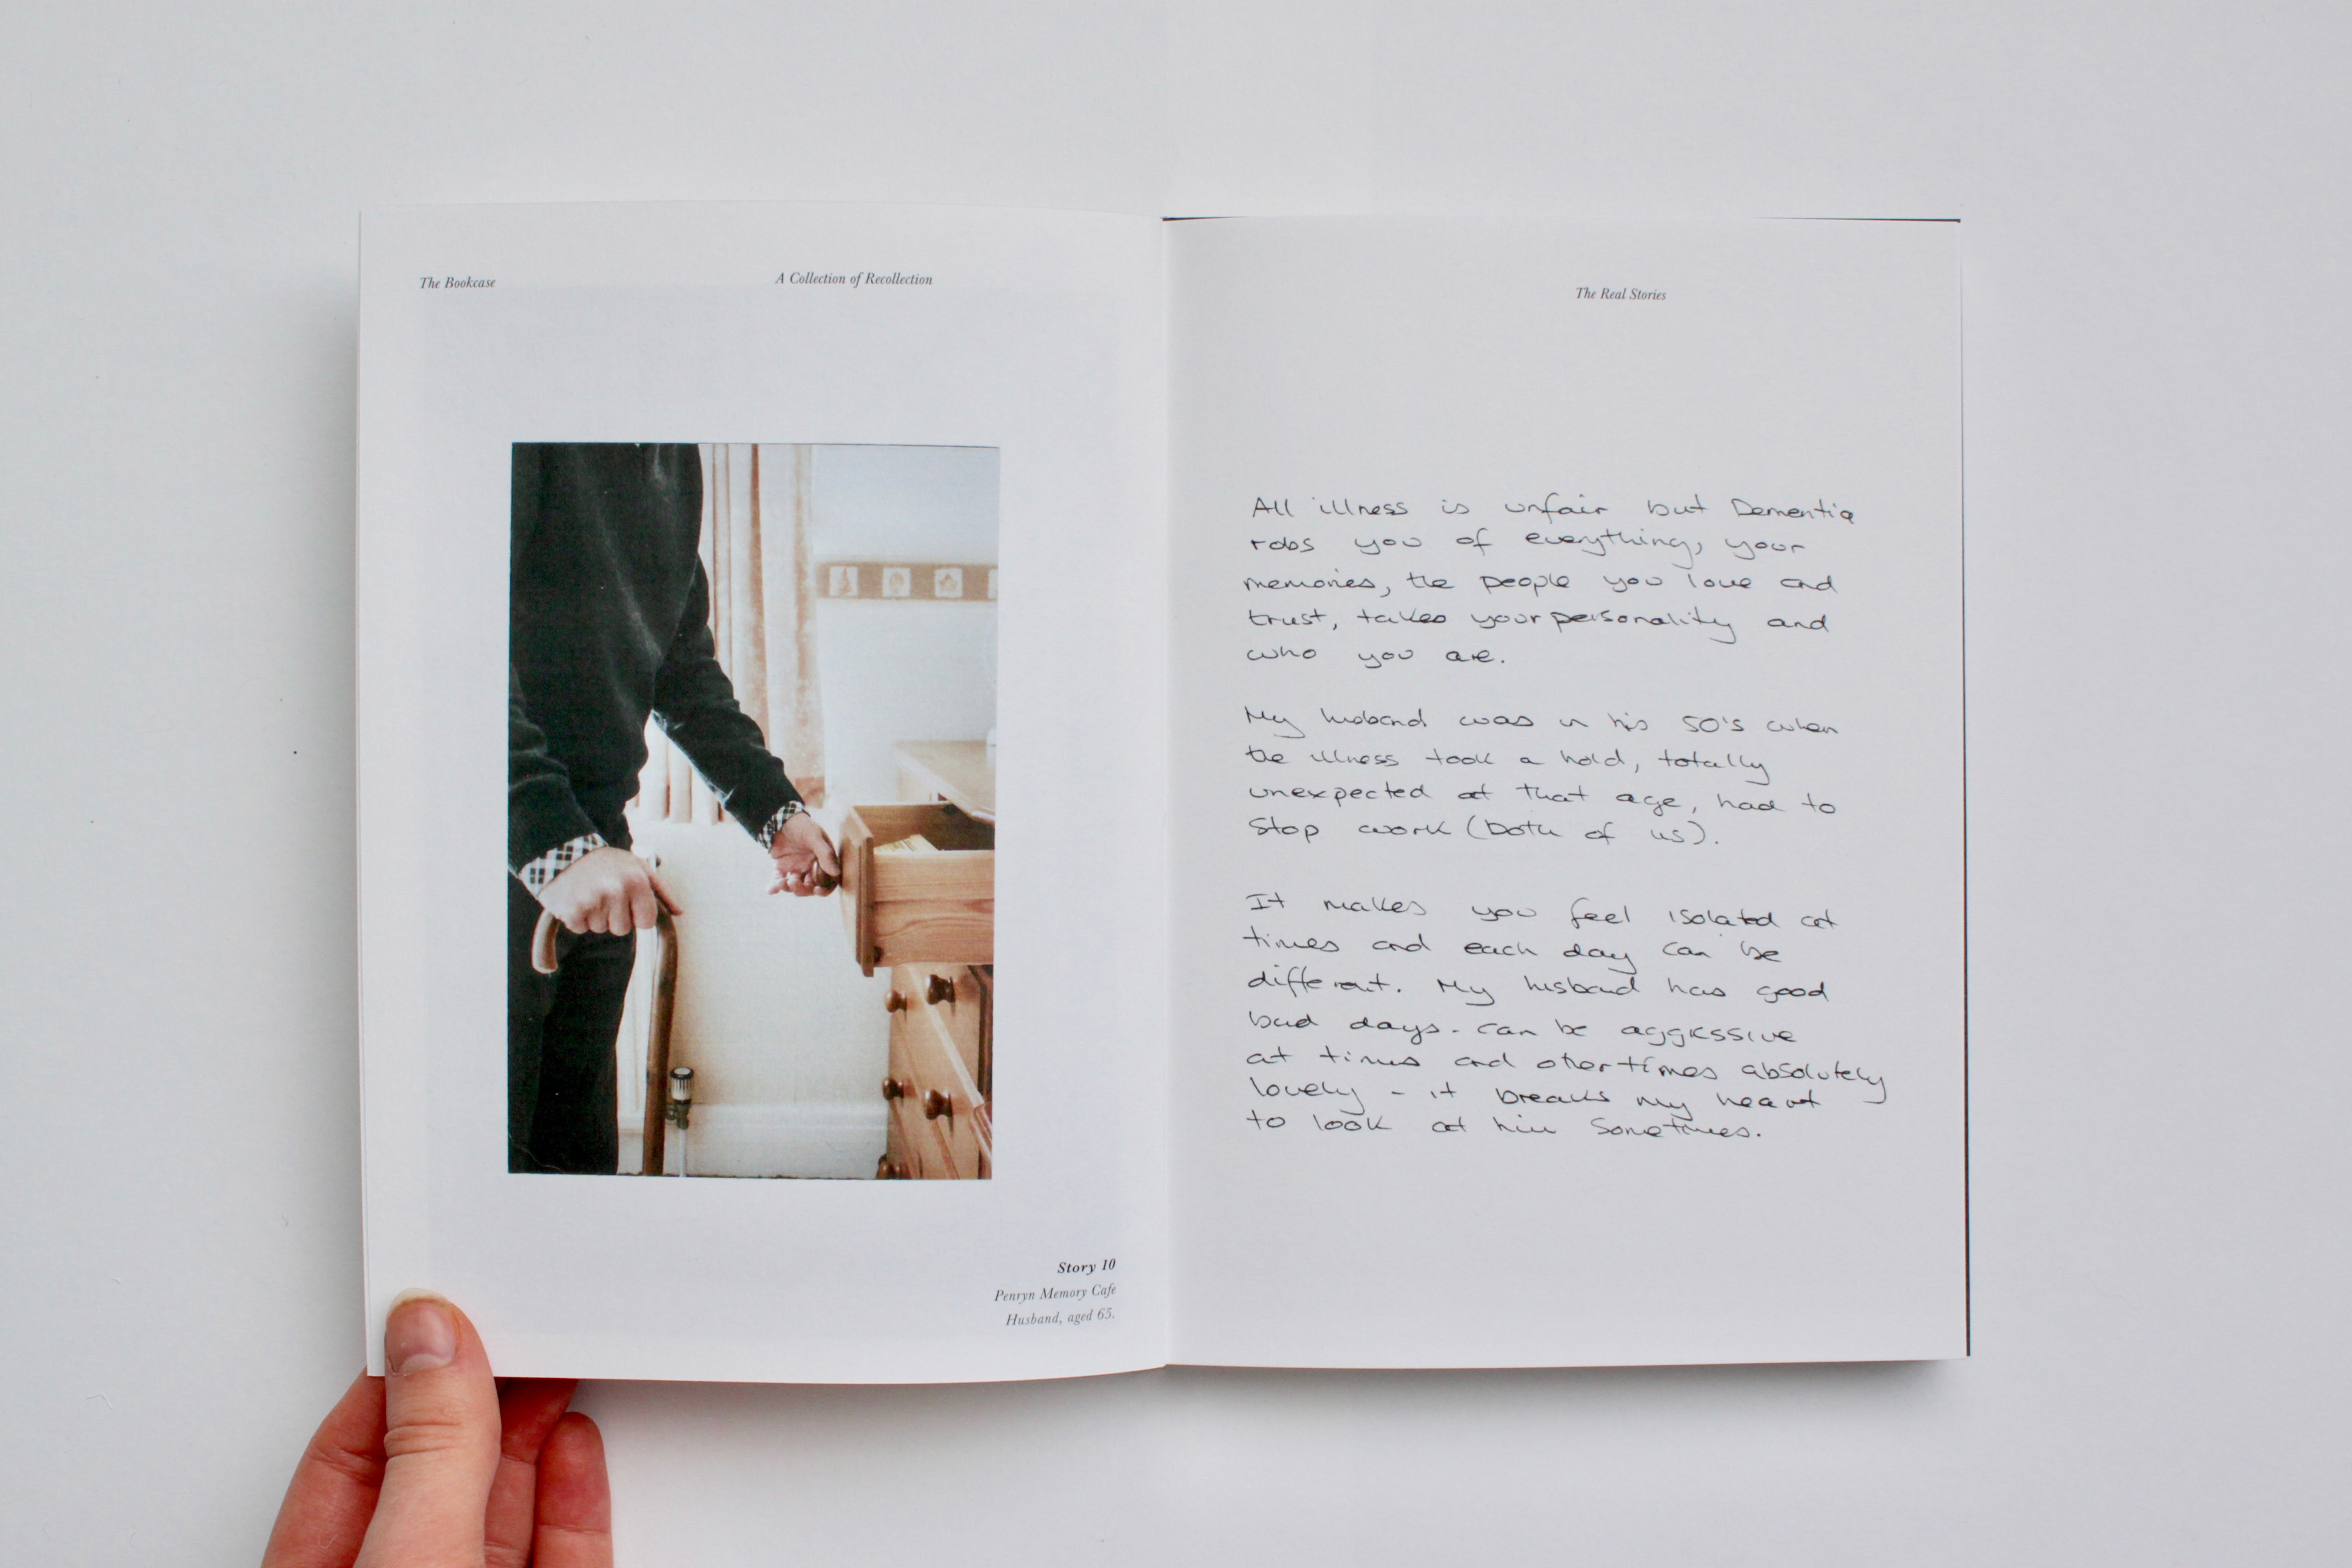 The Bookcase
A Collection of Recollection
Story 10
Penryn Memory Cafe
Husband, aged 65.
The Real Stories
All illness is unfair but Dementia
robs you of everything, your
memories, the people you love and
trust, takes your personality and
who you are.
My husband was in his 50's when
the illness took a hold, totally
unexpected at that age, had to
stop work (both of us).
It makes you feel isolated at
times and each day can be
different. My husband has good
bad days. can be aggressive
at times and other times absolutely
lovely - it breaks my heart
to look at him sometimes.